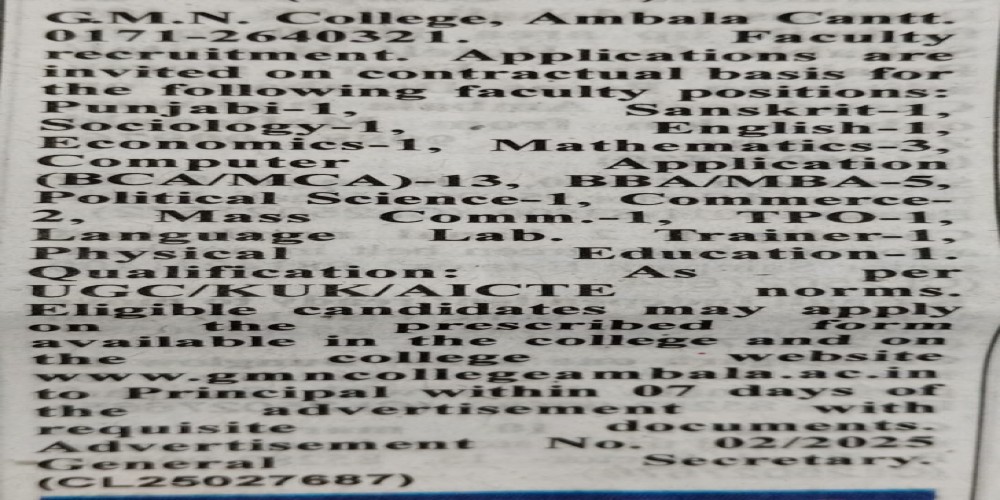 G.M.N. College, Ambala Cantt.
0171-2640321. Faculty
recruitment. Applications are
invited on contractual basis for
the following faculty positions:
Punjabi-1, Sanskrit-1,
Sociology-1, English-1,
Economics-1, Mathematics-3,
Computer Application
(BCA/MCA)-13, BBA/MBA-5,
Political Science-1, Commerce-
2, Mass Comm.-1, TPO-1,
Language Lab. Trainer-1,
Physical Education-1.
Qualification: As per
UGC/KUK/AICTE norms.
Eligible candidates may apply
on the prescribed form
available in the college and on
the college website
www.gmncollegeambala.ac.in
to Principal within 07 days of
the advertisement with
requisite documents.
Advertisement No. 02/2025
General Secretary.
(CL25027687)